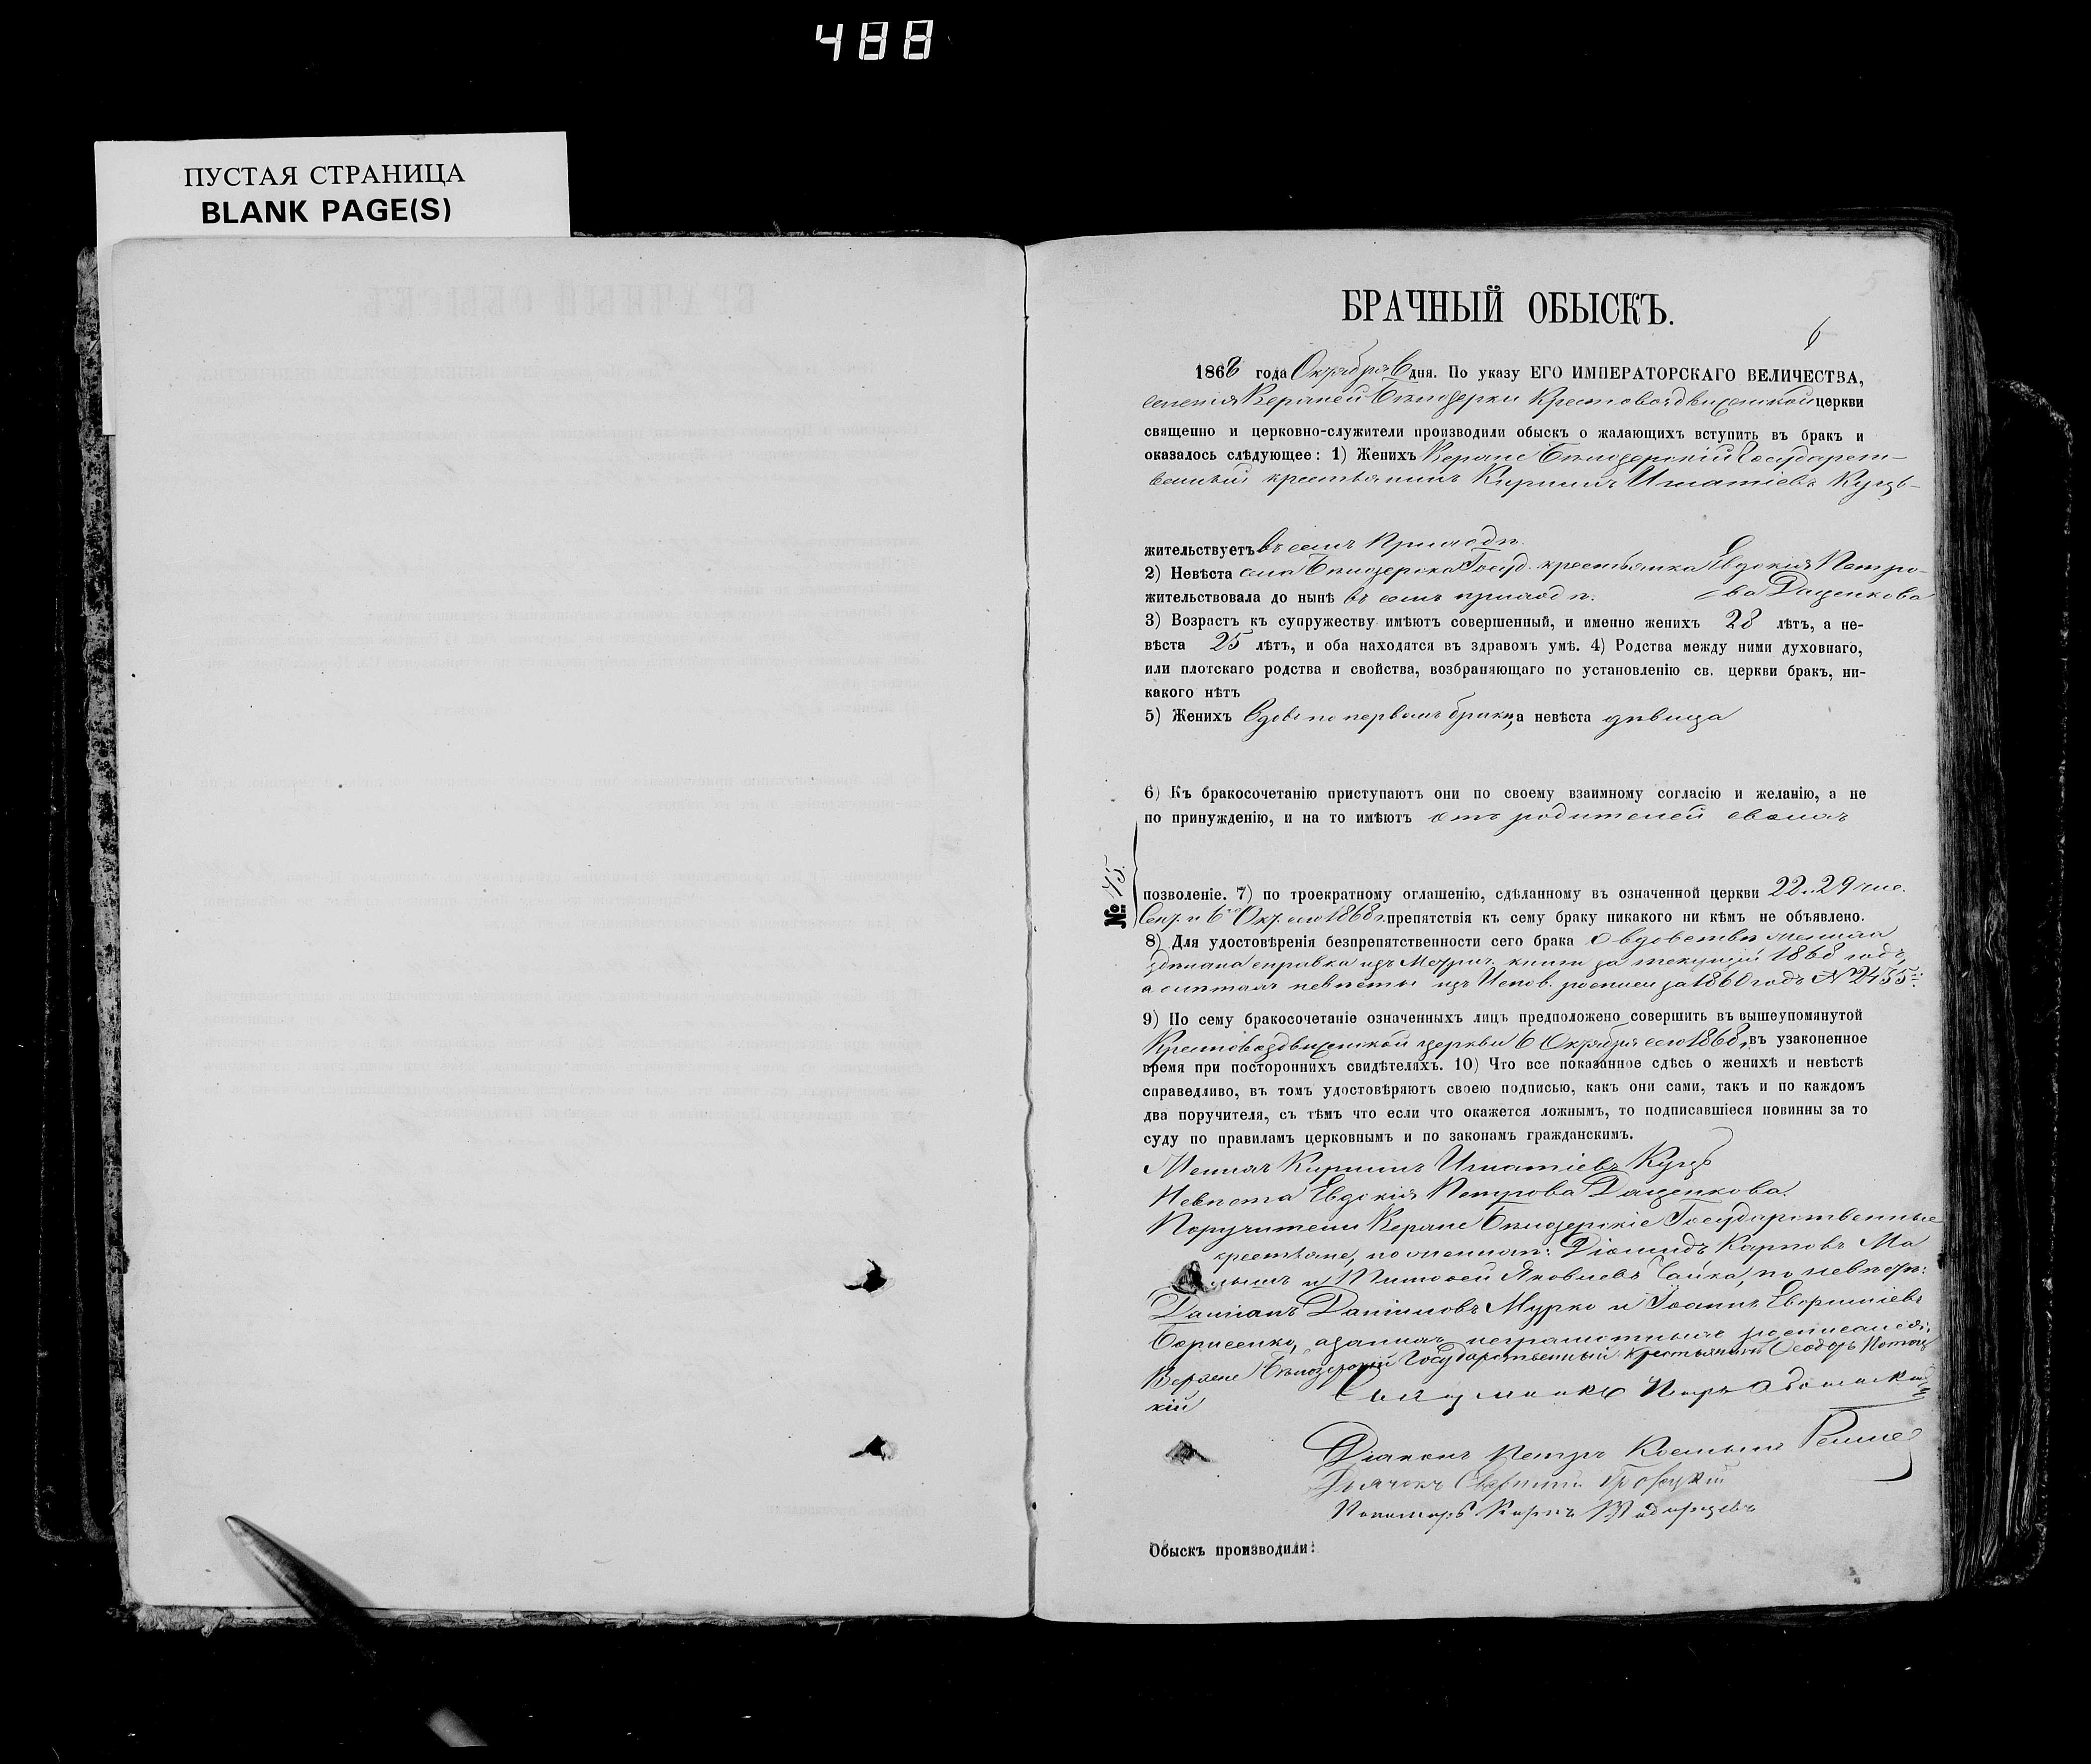 488
ПУСТАЯ СТРАНИЦА
BLANK PAGE(S)
5
БРАЧНЫЙ ОБЫСКЪ.
6
1868 года Октября 6 дня. По указу ЕГО ИМПЕРАТОРСКАГО ВЕЛИЧЕСТВА,
селенія Верхней Бѣлозерки Крестовоздвиженской церкви
священно и церковно-служители производили обыскъ о жалающихъ вступить въ бракъ и
оказалось слѣдующее: 1) Женихъ Верхне Бѣлозерскій Государст-
венный крестьянинъ Кириллъ Игнатіевъ
жительствуетъ въ семъ Приходѣ.
2) Невѣста села Бѣлозерска Госуд. крестьянка Евдокія Петро-
жительствовала до нынѣ въ семъ приходѣ. ва Даценкова
3) Возрастъ къ супружеству имѣютъ совершенный, и именно женихъ 28 лѣтъ, а не-
вѣста 25 лѣтъ, и оба находятся въ здравомъ умѣ. 4) Родства между ними духовнаго,
или плотскаго родства и свойства, возбраняющаго по установленію св. церкви бракъ, ни-
какого нѣтъ
5) Женихъ вдовъ по первомъ бракѣ, а невѣста дѣвица
6) Къ бракосочетанію приступаютъ они по своему взаимному согласію и желанію, а не
по принужденію, и на то имѣютъ отъ родителей своихъ
позволеніе. 7) по троекратному оглашенію, сдѣланному въ означенной церкви 22 и 29 чис.
№: 45.
Сент. и 6го Окт. сего 1868 г. препятствія къ сему браку никакого ни кѣмъ не объявлено.
8) Для удостовѣренія безпрепятственности сего брака о вдовствѣ жениха
сдѣлана справка изъ Метрич. книги за текущій 1868 годъ,
а о лѣтахъ невѣсты изъ Испов. росписи за 1860 годъ № 2435
9) По сему бракосочетаніе означенныхъ лицъ предположено совершить въ вышеупомянутой
Крестовоздвиженской церкви 6 Октября сего 1868 г. въ узаконенное
время при постороннихъ свидѣтеляхъ. 10) Что все показанное сдѣсь о женихѣ и невѣстѣ
справедливо, въ томъ удостовѣряютъ своею подписью, какъ они сами, такъ и по каждомъ
два поручителя, съ тѣмъ что если что окажется ложнымъ, то подписавшіеся повинны за то
суду по правиламъ церковнымъ и по законамъ гражданскимъ.
Женихъ Кириллъ Игнатіевъ
Невѣста Евдокія Петрова Даценкова.
Поручители Верхне Бѣлозерскіе Государственные
крестьяне, по женихѣ: Діомидъ Карповъ Ма
и Тимофей Яковлевъ Чайка, по невѣстѣ:
Даміанъ Даніиловъ Мурко и Іоаннъ
Борисенко, а за нихъ неграмотныхъ росписался:
Верхне Бѣлозерскій Государственный крестьянинъ Феодоръ
кій
Священникъ Петръ
Діаконъ Петръ
Дьячекъ
Пономарь
Обыскъ производили: